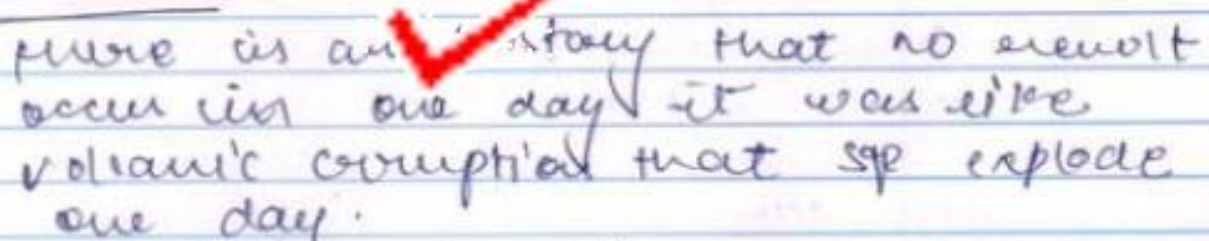 there is an story that no revolt
occur in one day it was like
volcanic corruption that explode
one day.